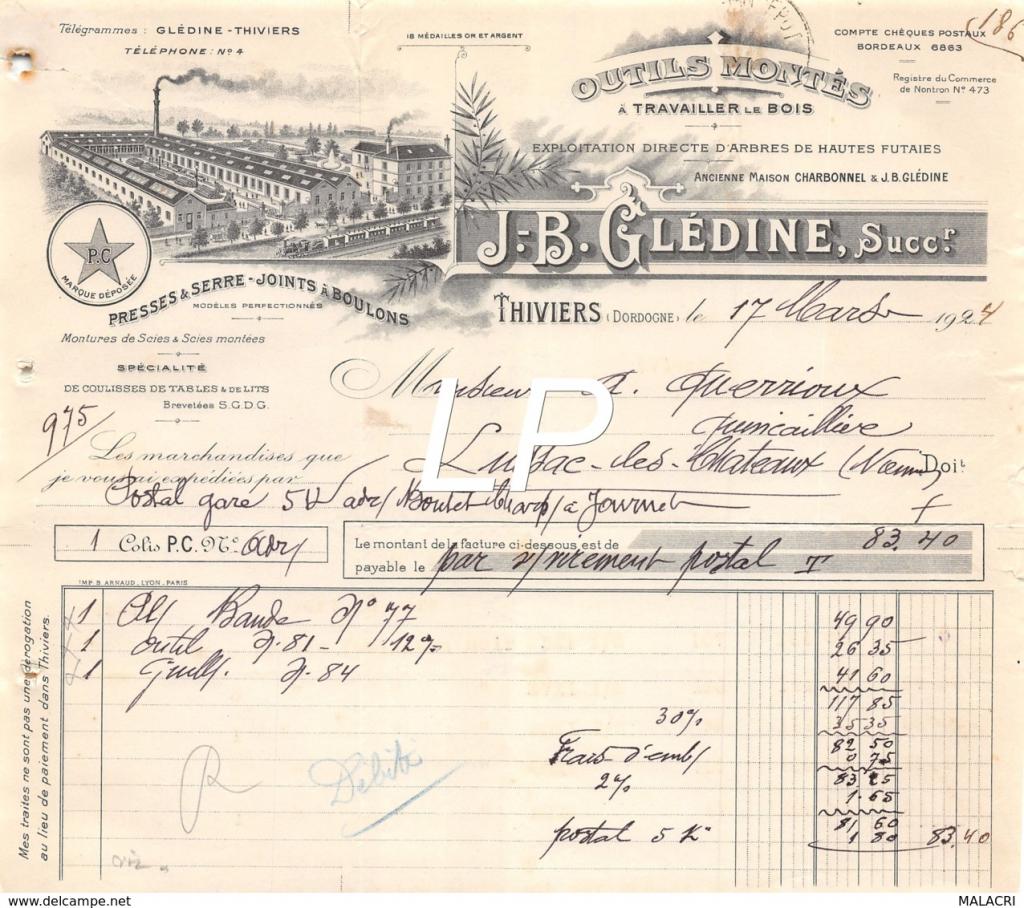 Télégrammes : GLÉDINE - THIVIERS
TÉLÉPHONE : Nº 4
18 MÉDAILLES OR ET ARGENT
OUTILS MONTÉS
À TRAVAILLER LE BOIS
COMPTE CHÈQUES POSTAUX
BORDEAUX 6863
186
Registre du Commerce
de Nontron Nº 473
EXPLOITATION DIRECTE D'ARBRES DE HAUTES FUTAIES
ANCIENNE MAISON CHARBONNEL & J.B. GLÉDINE
J.-B. GLÉDINE, Succr.
P.C
MARQUE DÉPOSÉE
PRESSES & SERRE-JOINTS À BOULONS
MODÈLES PERFECTIONNÉS
THIVIERS (DORDOGNE) le 17 Mars 1924
Montures de Scies & Scies montées
SPÉCIALITÉ
DE COULISSES DE TABLES & DE LITS
Brevetées S.G.D.G.
Monsieur A. Guerrioux
Quincaillier
975
Lussac-les-Chateaux Doit
Les marchandises que
je vous ai expédiées par
Postal gare 5 à Journet
1 Colis P.C. Nº Adr/
Le montant de la facture ci-dessous est de 83.40
payable le par virement postal
IMP. B. ARNAUD, LYON, PARIS
1 Nº 77 49 90
1 outil Nº 81 - 26 35
1 Guill. Nº 84 41 60
117 85
30% 35 35
82 50
Frais d'emb/ 0 75
83 25
2% 1.65
81 60
postal 5 Kº 1 80 83.40
Débité
Mes traites ne sont pas une dérogation
au lieu de paiement dans Thiviers.
LP
delcampe.net
MALACRI